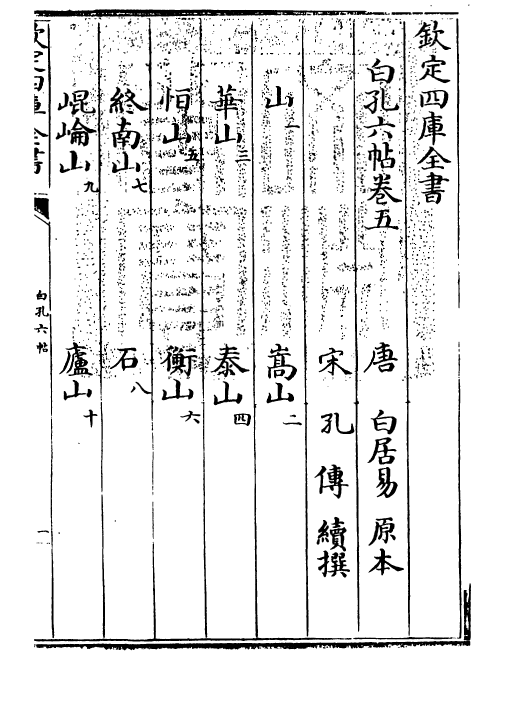 欽定四庫全書
白孔六帖卷五
唐 白居易 原本
宋 孔傳 續撰
山一 嵩山二
華山三 泰山四
恒山五 衡山六
終南山七 石八
崐崘山九 廬山十
欽定四庫全書
白孔六帖
一